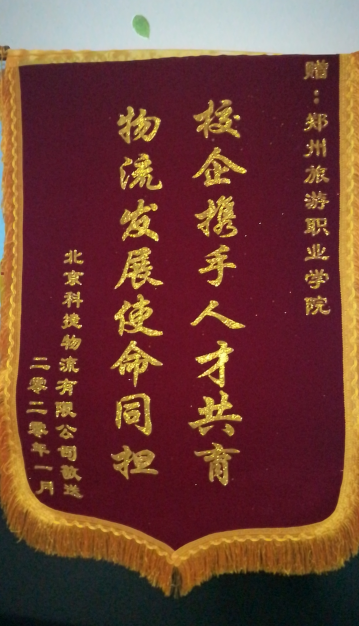 赠：郑州旅游职业学院
校企携手人才共育
物流发展使命同担
北京科捷物流有限公司敬送
二零二零年一月